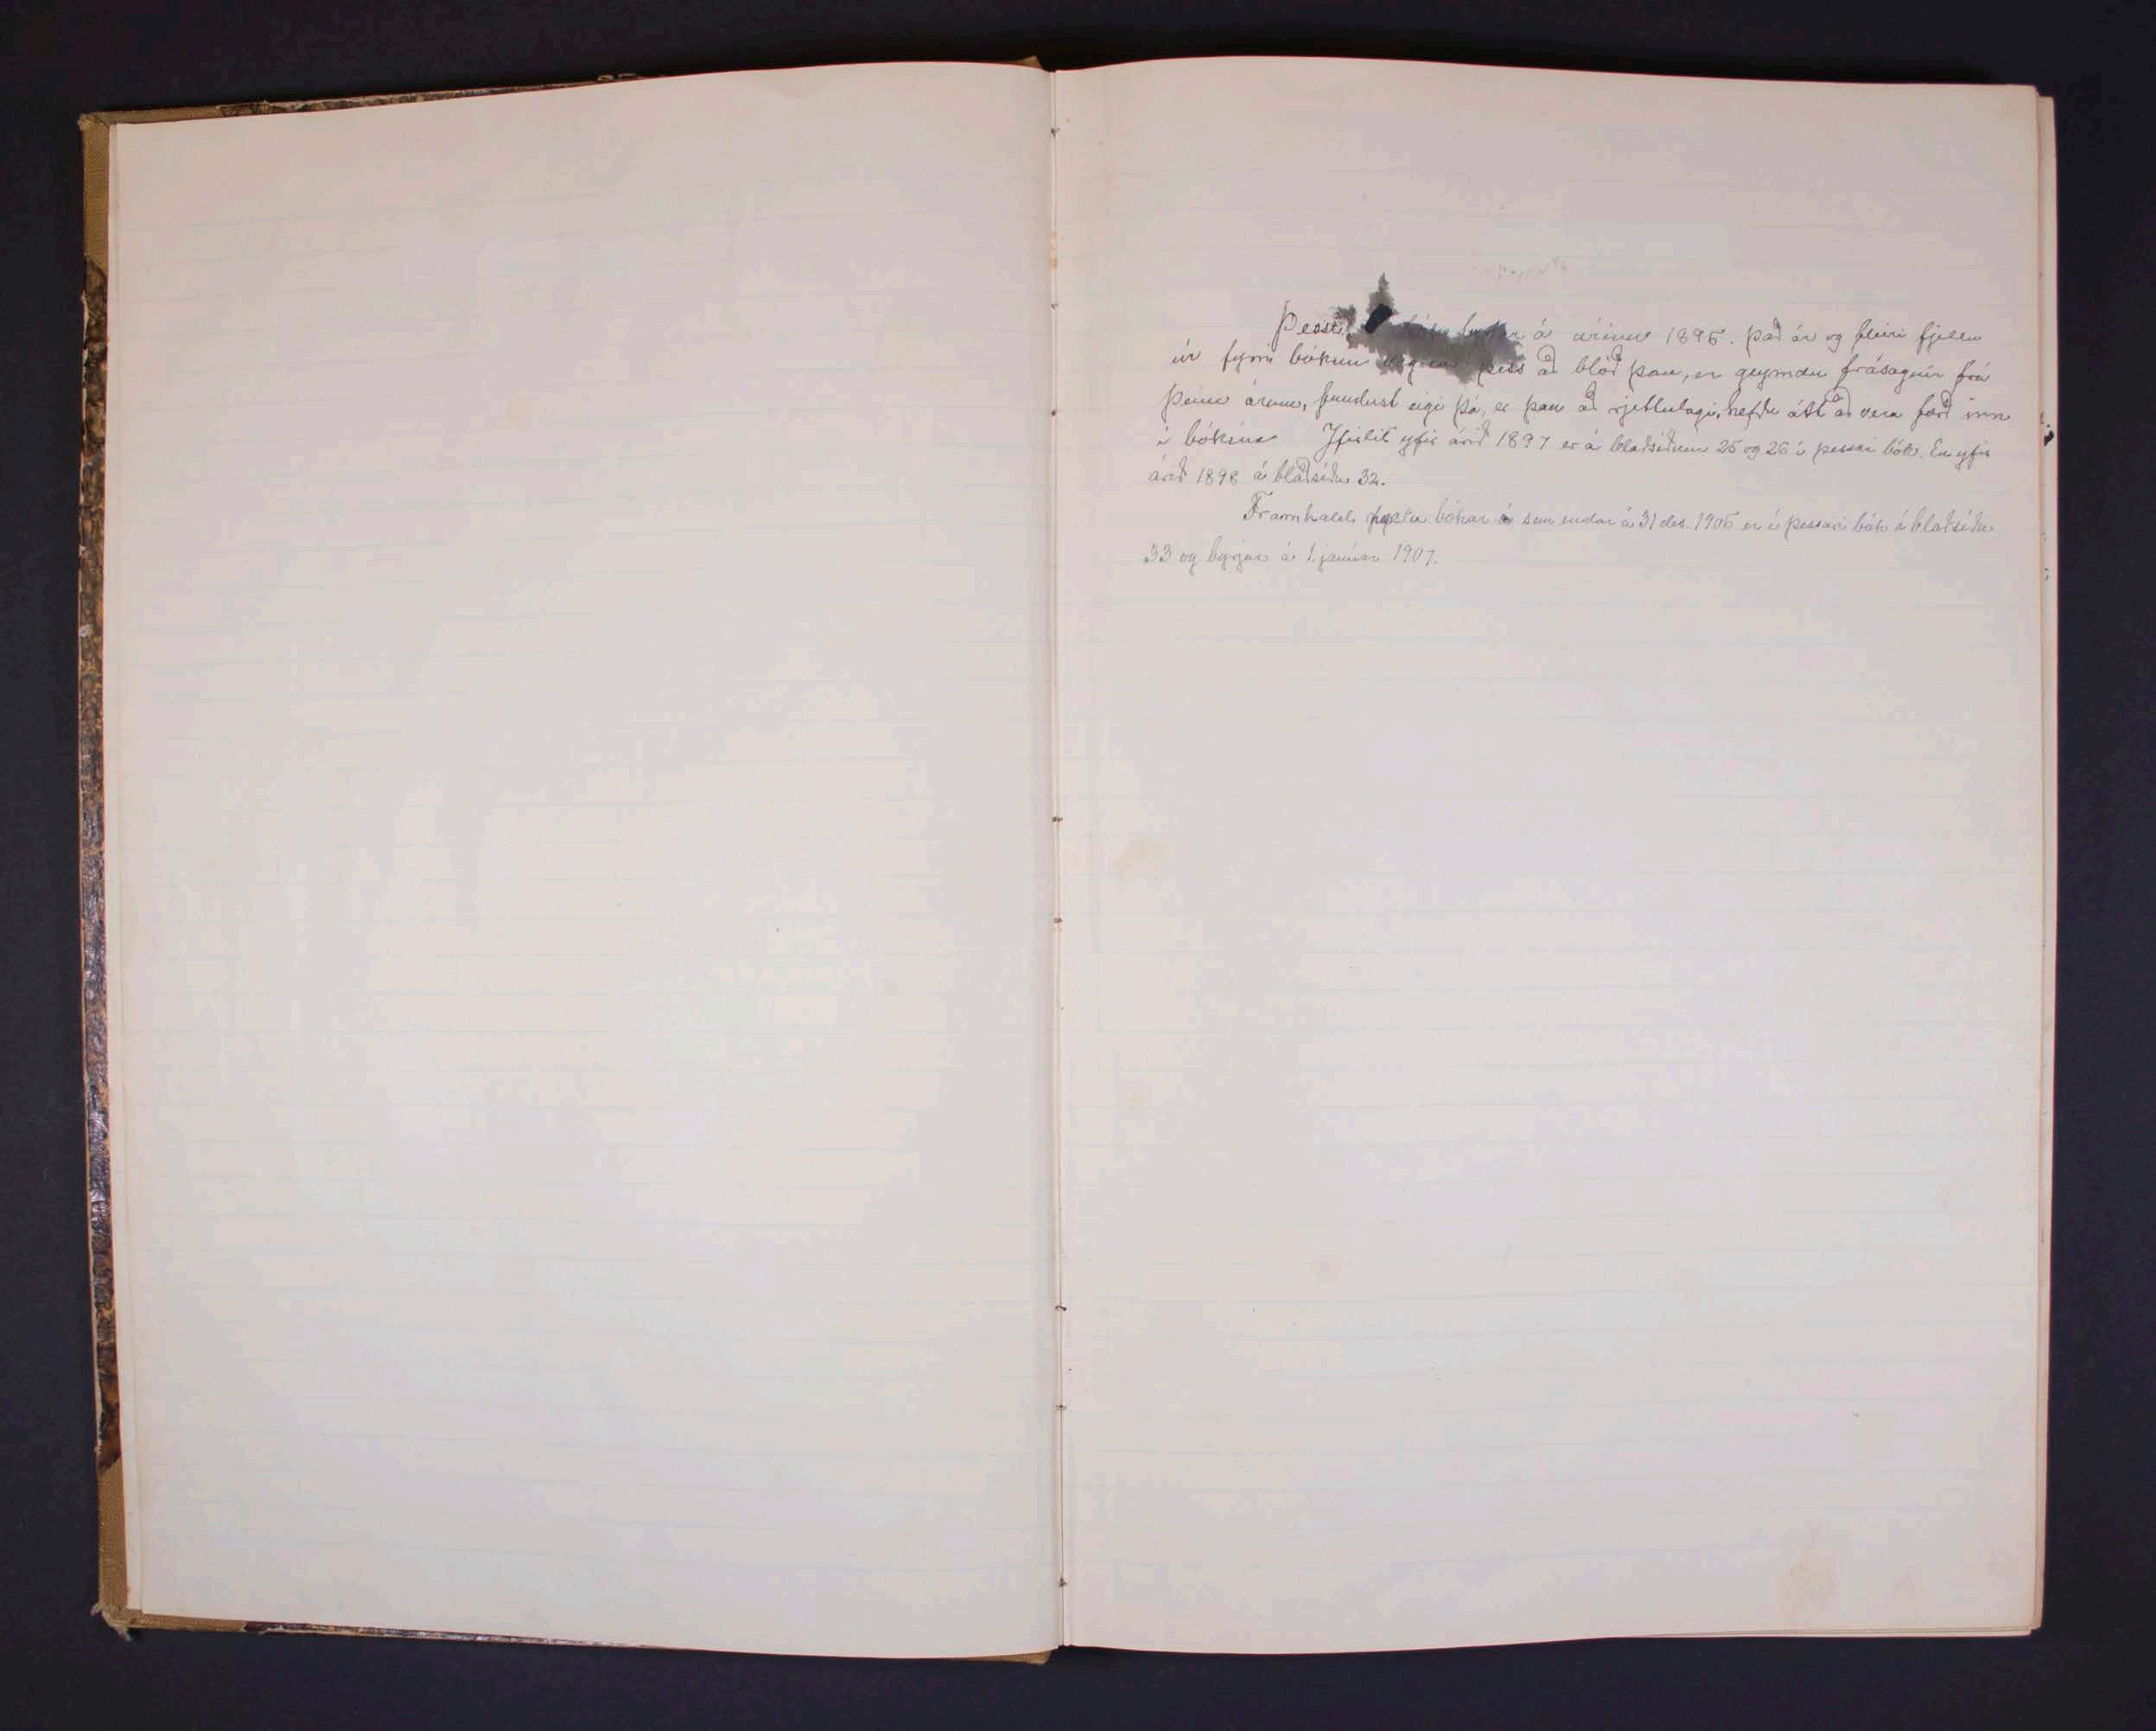 Þessi bók byrjar á árinu 1895. það ár og fleiri fjellu
úr fyrri bókum vegna þess að blöð þau, er geymdu frásagnir frá
þeim árum, fundust eigi þá, er þau að rjettulagi, hefðu átt að vera færð inn
í bókina Yfirlit yfir árið 1897 er á blaðsíðum 25 og 26 í þessari bók. En yfir
árið 1898 á blaðsíðu 32.
Framhald bókar sem endar á 31 des. 1906 er í þessari bók á blaðsíðu
33 og byrjar á 1. janúar 1907.